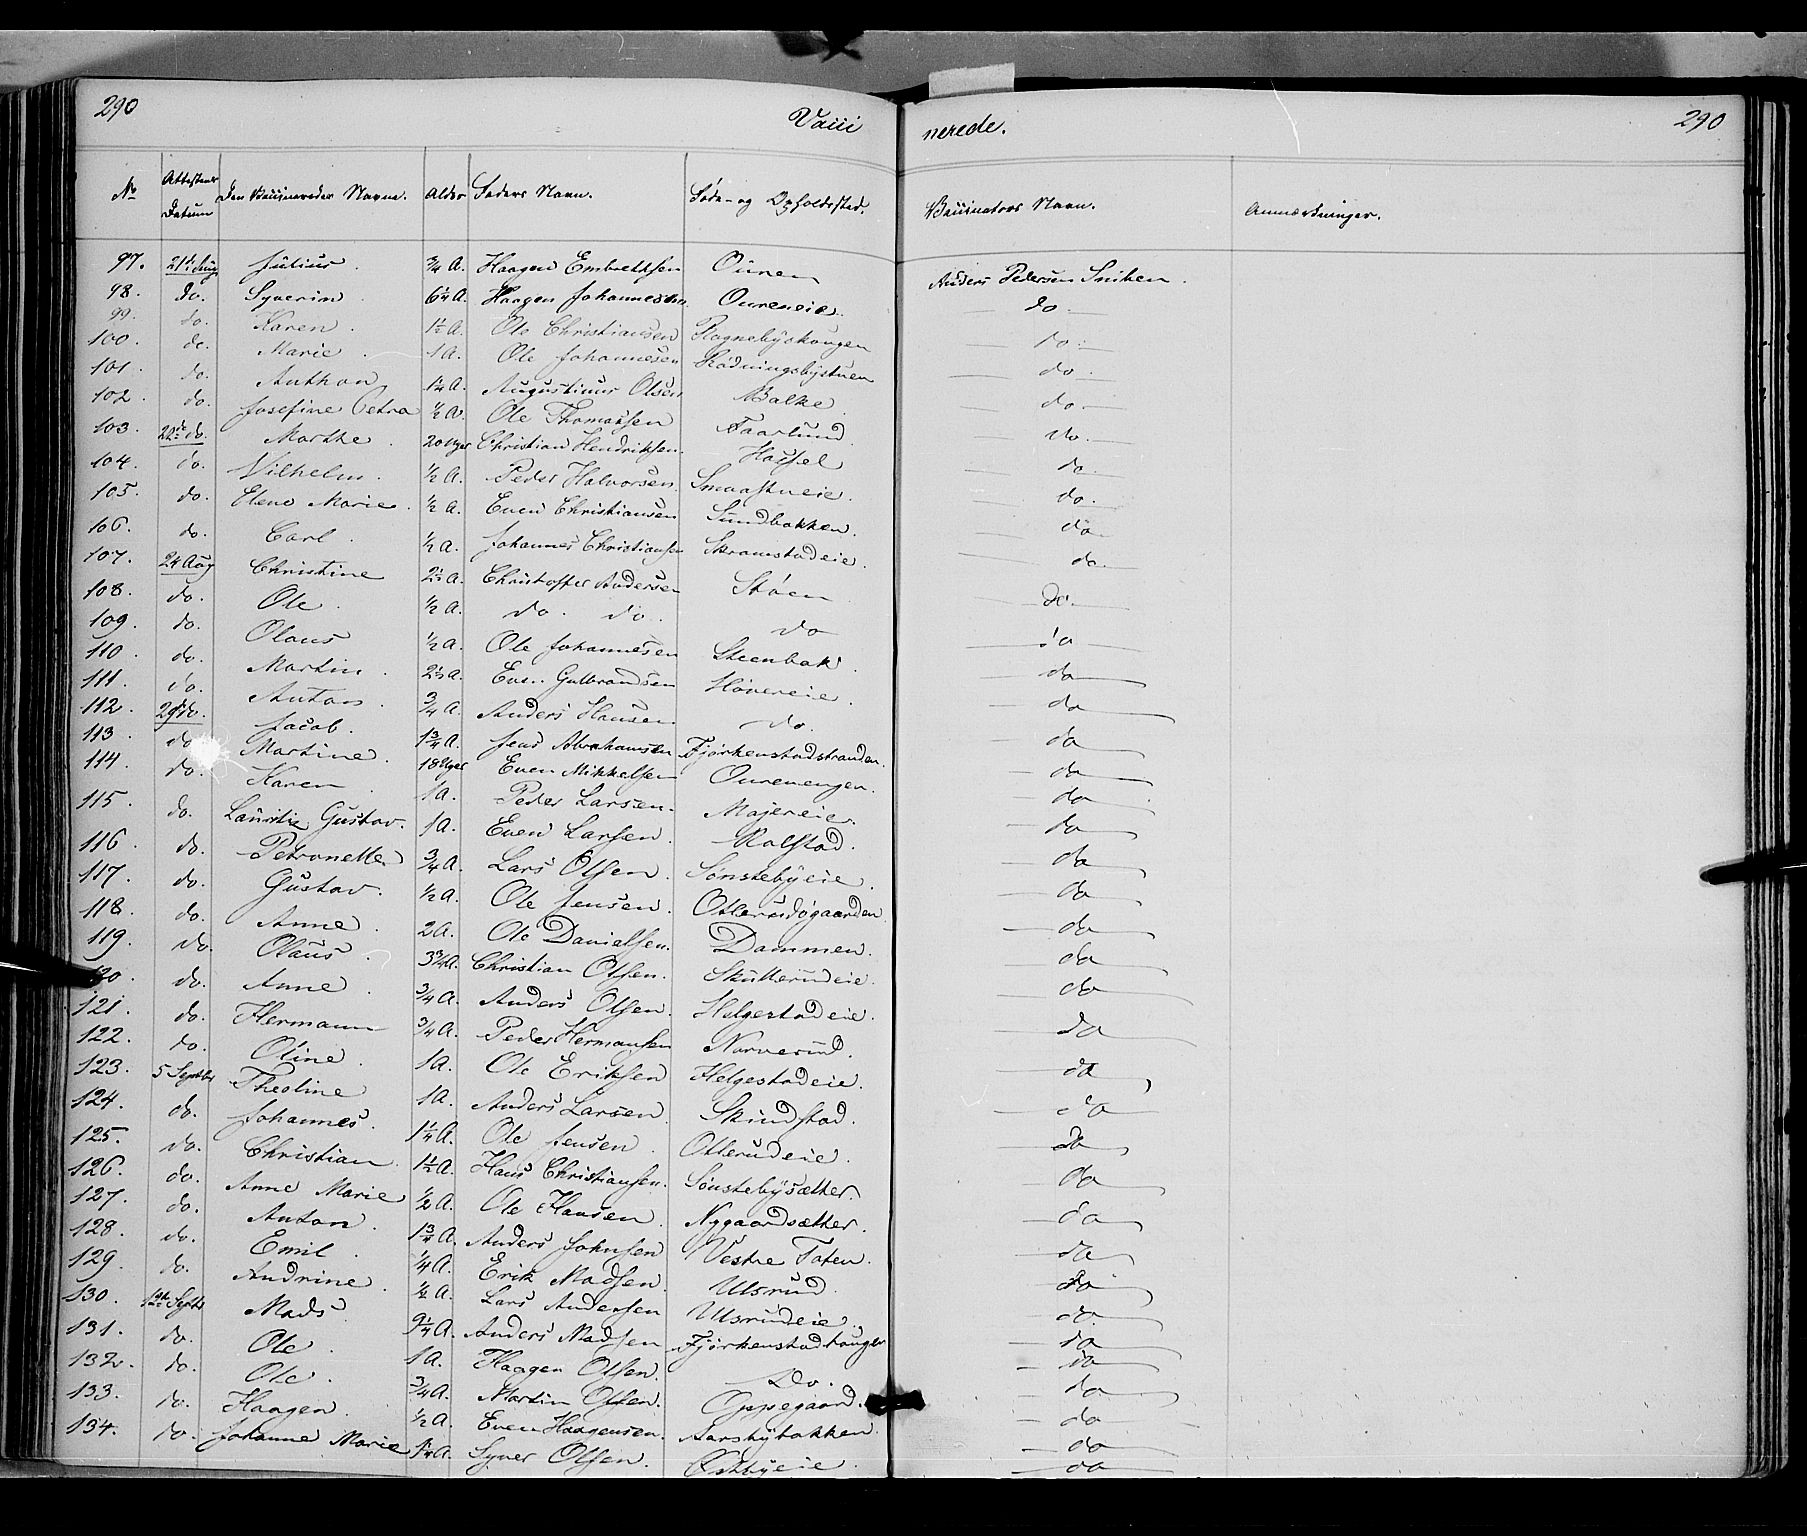 290 Vacci nerede. 290
No Attestens Datum Den Vaccineredes Navne. Alder Faders Navn. Føde- og Opholdssted. Vaccinators Navn. Anmærkninger.
97. 21de Aug Julius. 3/4 A. Haagen Embretsen Ouren Anders Pedersen Sniken.
98. do. Syverin 6 1/4 A. Haagen Johannesen. Oureneie. do.
99. do. Karen. 1 1/2 A. Ole Christiansen Rognebyhougen do.
100. do. Marie. 1 A. Ole Johannesen Rødningsbystuen do.
101. do. Anthon 1 1/4 A. Augustinus Olsen Balke. do.
102. do. Josefine Petra 1/2 A. Ole Thomassen Faarlund. do.
103. 22de do. Marthe. 20 Uger Christian Hendriksen. Hassel do.
104. do. Vilhelm. 1/2 A. Peder Halvorsen Smaastueie. do.
105. do. Elene Marie. 1/2 A. Even Christiansen Sundbakken. do
106. do. Carl. 1/2 A. Johannes Christiansen Skramstadeie. do.
107. 24 Aug Christine 2 1/2 A. Christoffer Andersen Støen do.
108. do. Ole. 1/2 A. do. do. do do
109. do. Olaus 1/2 A. Ole Johannesen Steenbak. do
110. do. Martin. 2 1/2 A. Even Gulbrandsen Høvereie. do
111. do. Anton. 3/4 A. Anders Hansen do. do
112. 29de do. Jacob. 1 3/4 A. Jens Abrahamsen Fjørkenstadstranden. do
113. do. Martine. 18 Uger Even Mikkelsen Ourenengen. do
114. do. Karen. 1 A. Peder Larsen. Majereie. do
115. do. Lauritz Gustav. 1 A. Even Larsen. Kolstad. do
116. do. Petronelle 3/4 A. Lars Olsen. Sønstebyeie. do
117. do. Gustav. 1/2 A. Ole Jensen. Otterudsgaarden do
118. do. Anne. 2 A. Ole Danielsen. Dammen. do
119. do. Olaus. 3 3/4 A. Christian Olsen. Skutterudeie. do
120. do. Anne. 3/4 A. Anders Olsen. Helgestadeie. do
121. do. Hermann 3/4 A. Peder Hermansen Narverud. do
122. do. Oline. 1 A. Ole Eriksen Helgestadeie. da
123. 5 Septbr Theoline 1 A. Anders Larsen Skundstad. do
124. do. Johannes. 1 1/4 A. Ole Jensen. Otterudeie. do
125. do. Christian. 1 1/2 A. Hans Christiansen. Sønstebysætter. do
126. do. Anne Marie 1/2 A. Ole Hansen. Nygaardsætter. do
127. do. Anton. 1 3/4 A. Anders Johnsen Vestre Toten. do
128. do. Emil. 1/4 A. Erik Madsen. Ulsrud. do
129. do. Andrine. 1/2 A. Lars Andersen Ulsrudeie. do.
130. 12te Septr Mads. 9 1/4 A. Anders Madsen Fjørkenstadhougen do
131. do. Ole. 1 A. Haagen Olsen. Do. do
132. do. Ole. 3/4 A. Martin Olsen. Oppegaard. do
133. do. Haagen. 1/2 A. Even Haagensen. Aarsbybakken. do
134. do. Johanne Marie 1 1/4 A. Syver Olsen. Østbyeie. do
do